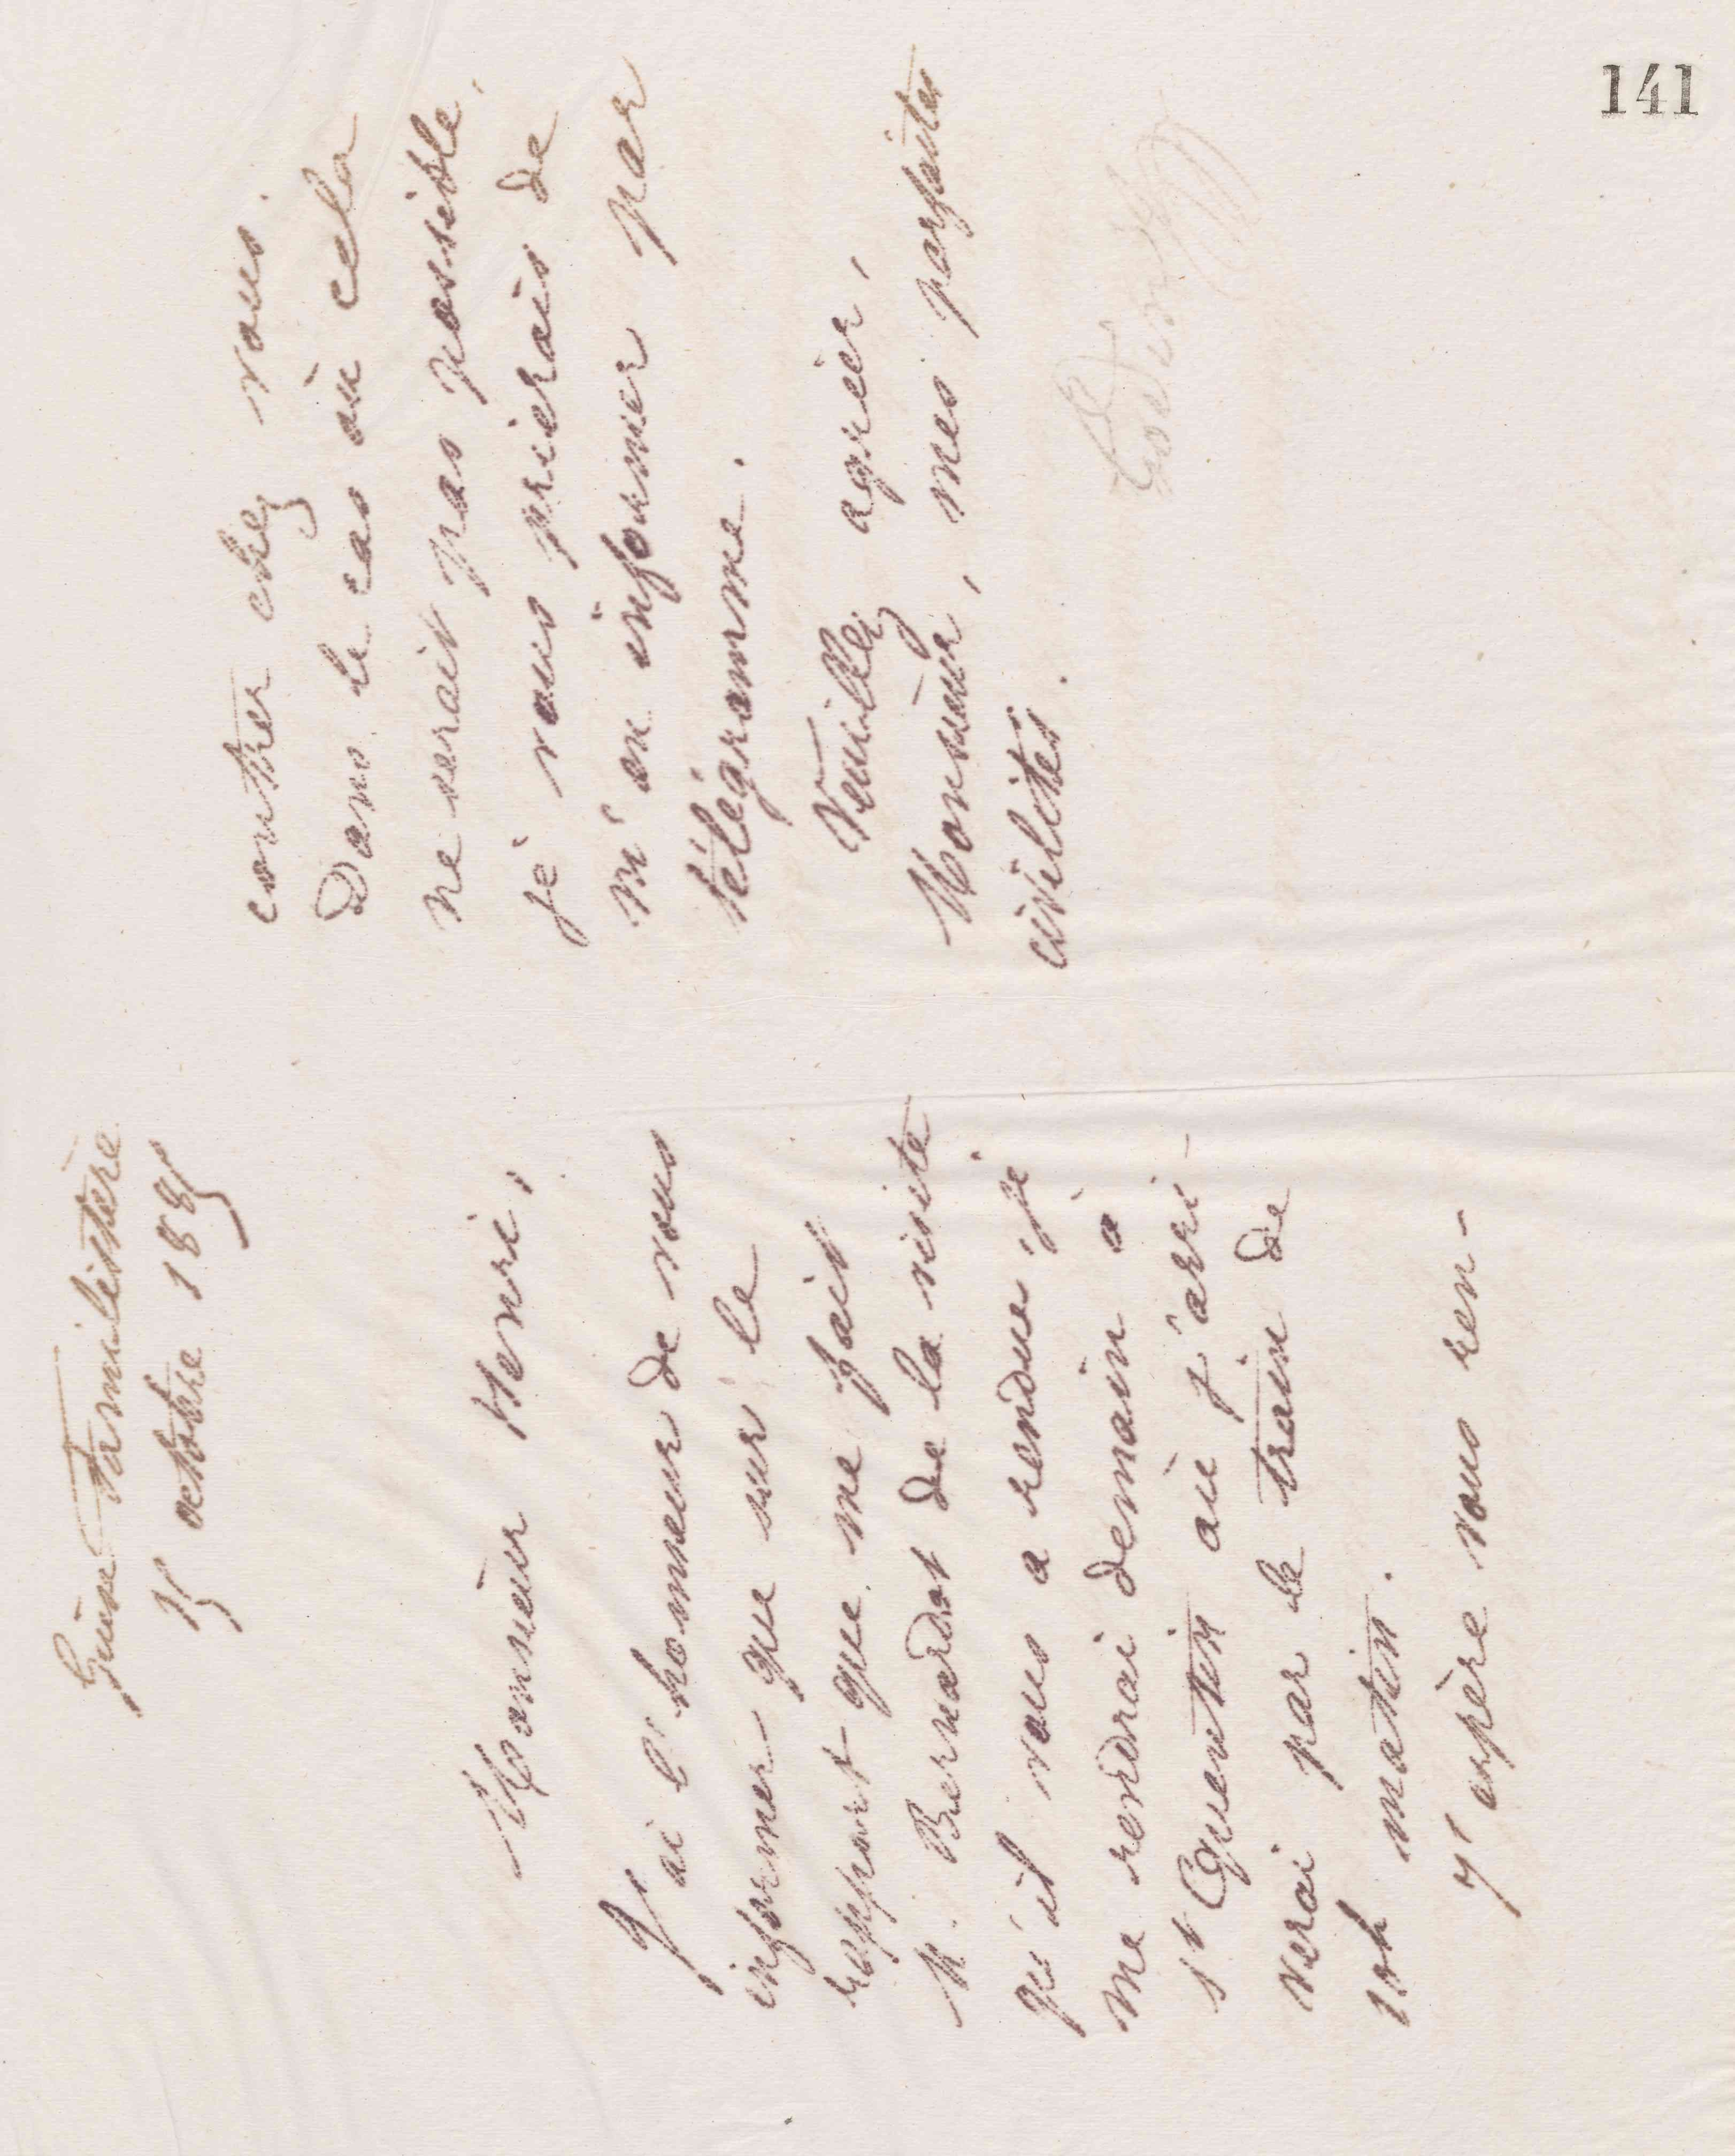 141
Guise Familistère
5 octobre 1885
Monsieur Henri,
J'ai l'honneur de vous
informer que sur le
rapport que me fait
M. Bernardot de la visite
qu'il vous a rendue, je
me rendrai demain à
St Quentin où j'arri-
verai par le train de
10h matin.
J'espère vous ren-
contrer chez vous.
Dans le cas où cela
ne serait pas possible,
je vous prierais de
m'en informer par
télégramme.
Veuillez agréer,
Monsieur, mes parfaites
civilités.
Godin